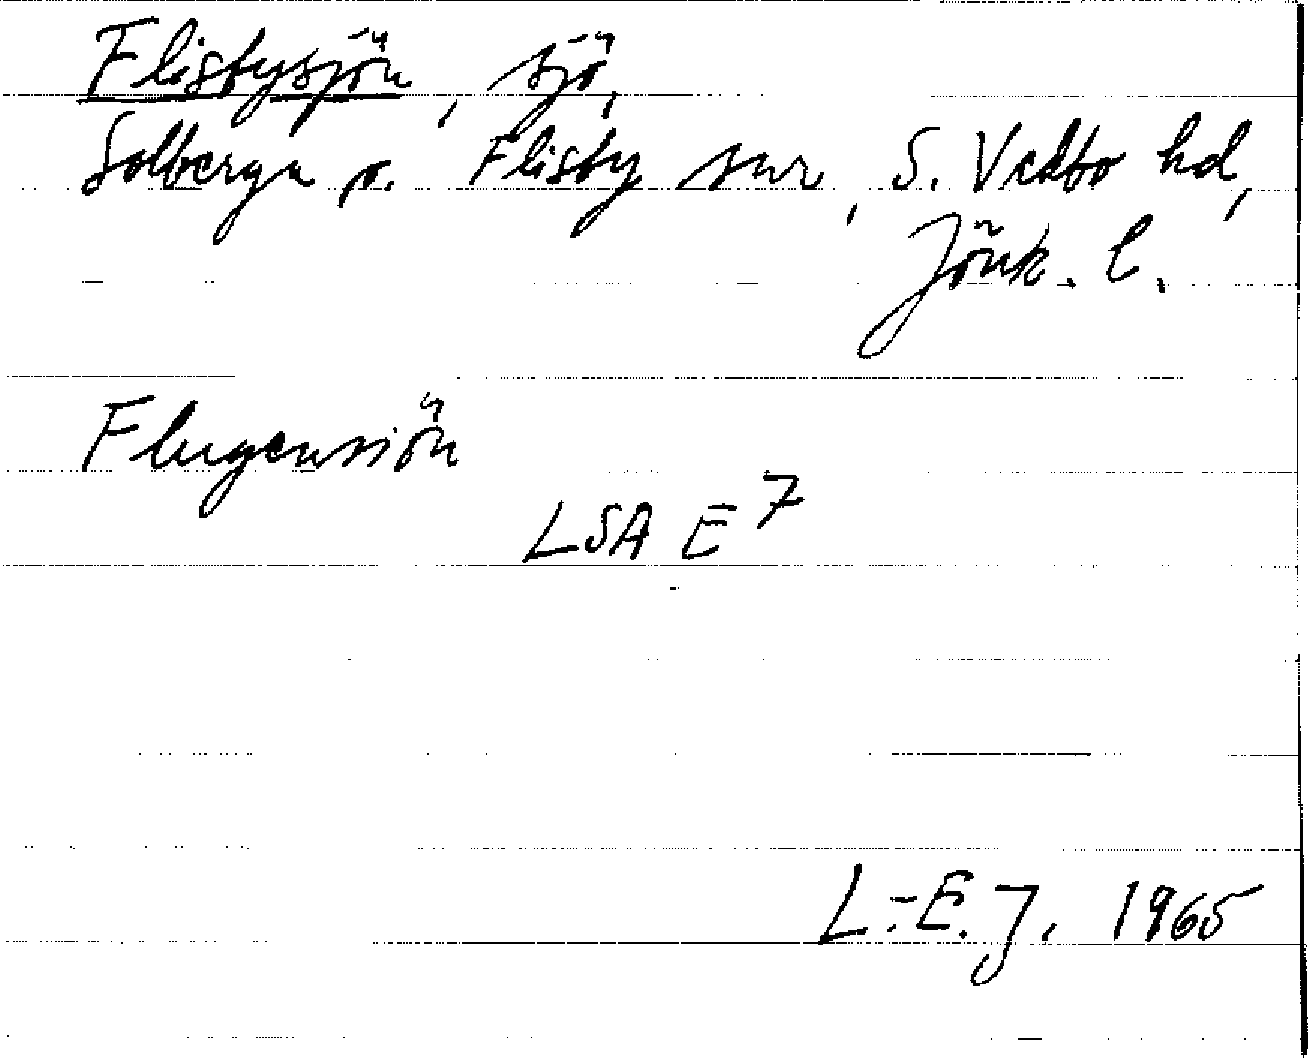 Flisbysjön, sjö,
Solberga s. Flisby snr, S. Vedbo hd,
Jönk. l.
Flugensiön
LSA E 7
L.-E. J. 1965